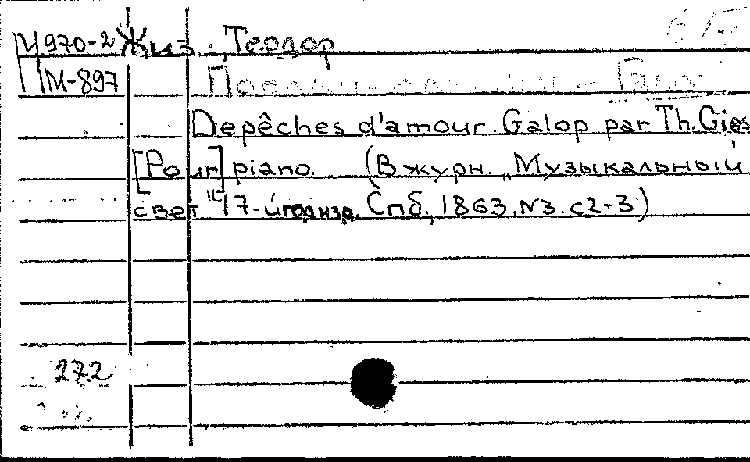 Ч970-2 Жиз, Теодор
ПМ-897
Depêches d'amour. Galop par Th. Gies
[Pour] piano. (В журн. „Музыкальный
свет" 17-й год изд. Спб, 1863, N3. с2-3)
272